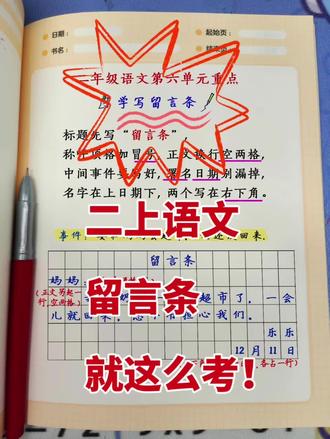 日期：
起始页：
书名：
二年级语文第六单元重点
学写留言条
标题先写“留言条”，
称呼顶格加冒号，正文换行空两格，
中间事件要写好，署名日期别漏掉，
名字在上日期下，两个写在右下角。
二上语文
事件：
回来。
留言条
妈妈
留言条
(正文另起一行，空两格)
超市了，一会
儿就回来，
担心我们。
乐乐
就这么考！
12月11日
各占一行)